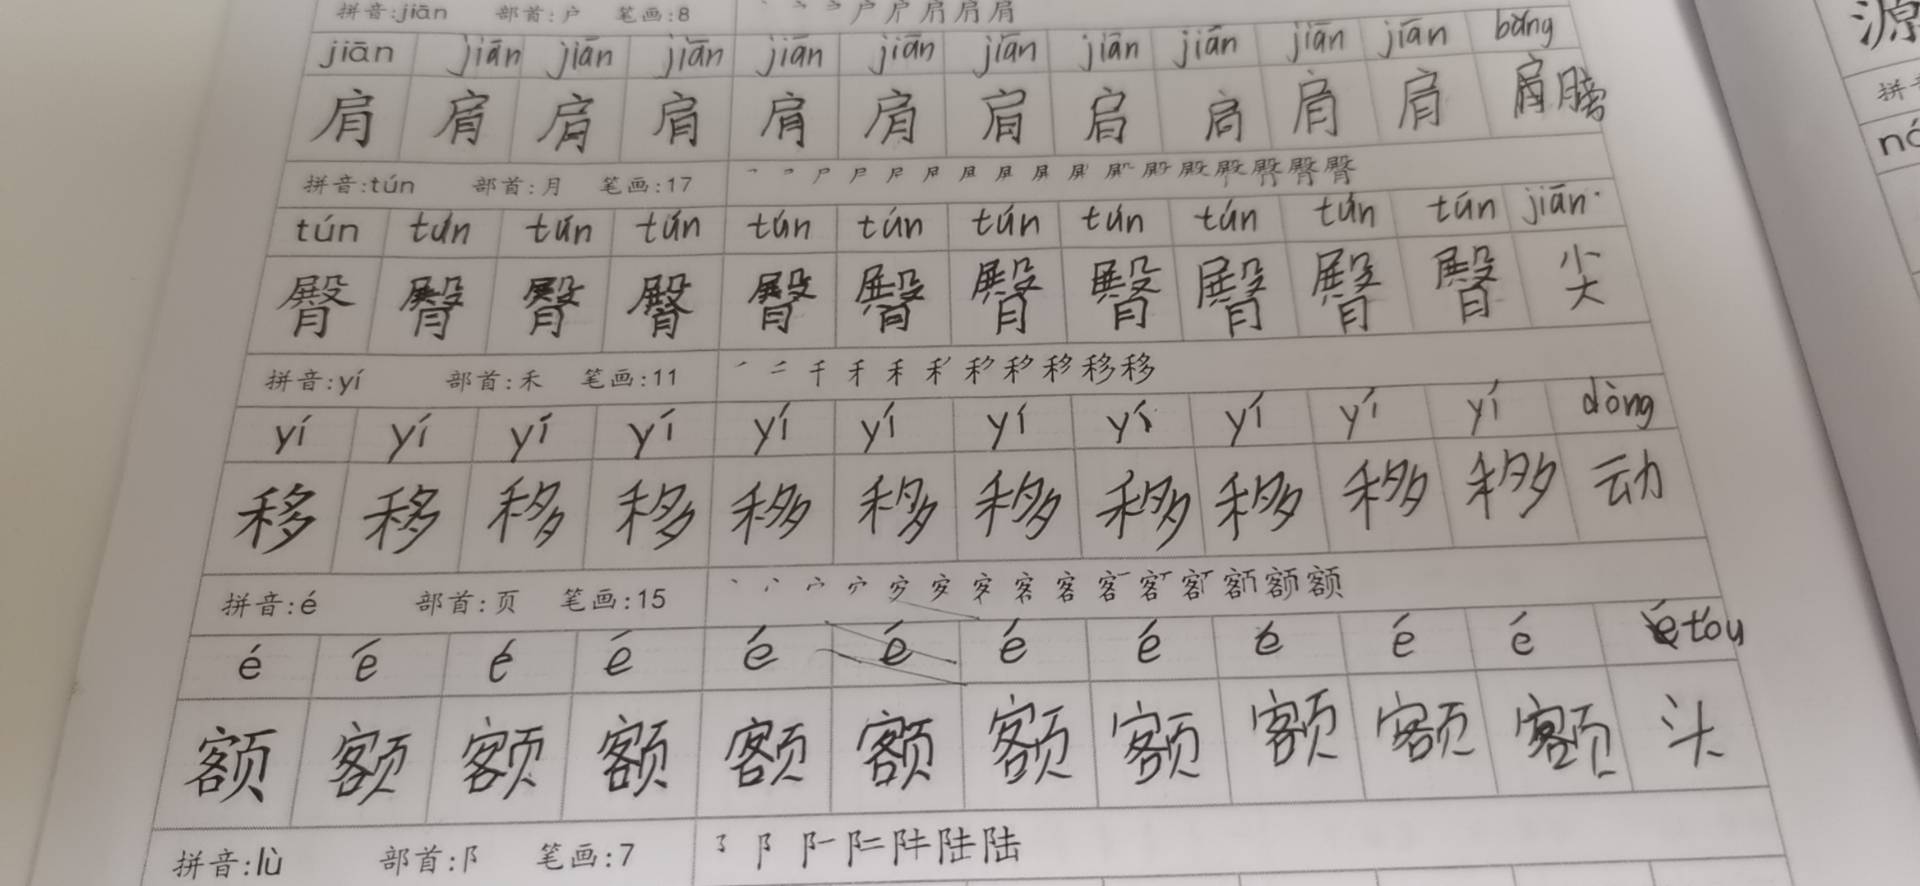 拼音:jiān 部首:户 笔画:8 丶 户 户 肩 肩 肩
jiān jiān jiān jiān jiān jiān jiān jiān jiān jiān jiān bǎng
肩 肩 肩 肩 肩 肩 肩 肩 肩 肩 肩 肩膀
拼音:tún 部首:月 笔画:17 尸 尸 尸 屏 屏 殿 殿 臀 臀 臀
tún tún tún tún tún tún tún tún tún tún tún jiān
臀 臀 臀 臀 臀 臀 臀 臀 臀 臀 臀 尖
拼音:yí 部首:禾 笔画:11 一 二 千 禾 禾 禾 移 移 移 移 移
yí yí yí yí yí yí yí yí yí yí yí dòng
移 移 移 移 移 移 移 移 移 移 移 动
拼音:é 部首:页 笔画:15 丶 宀 宀 安 客 客 客 额 额 额
é é é é é é é é é é é é tóu
额 额 额 额 额 额 额 额 额 额 额 头
拼音:lù 部首:阝 笔画:7 阝 阝 阡 陆 陆
源
拼音